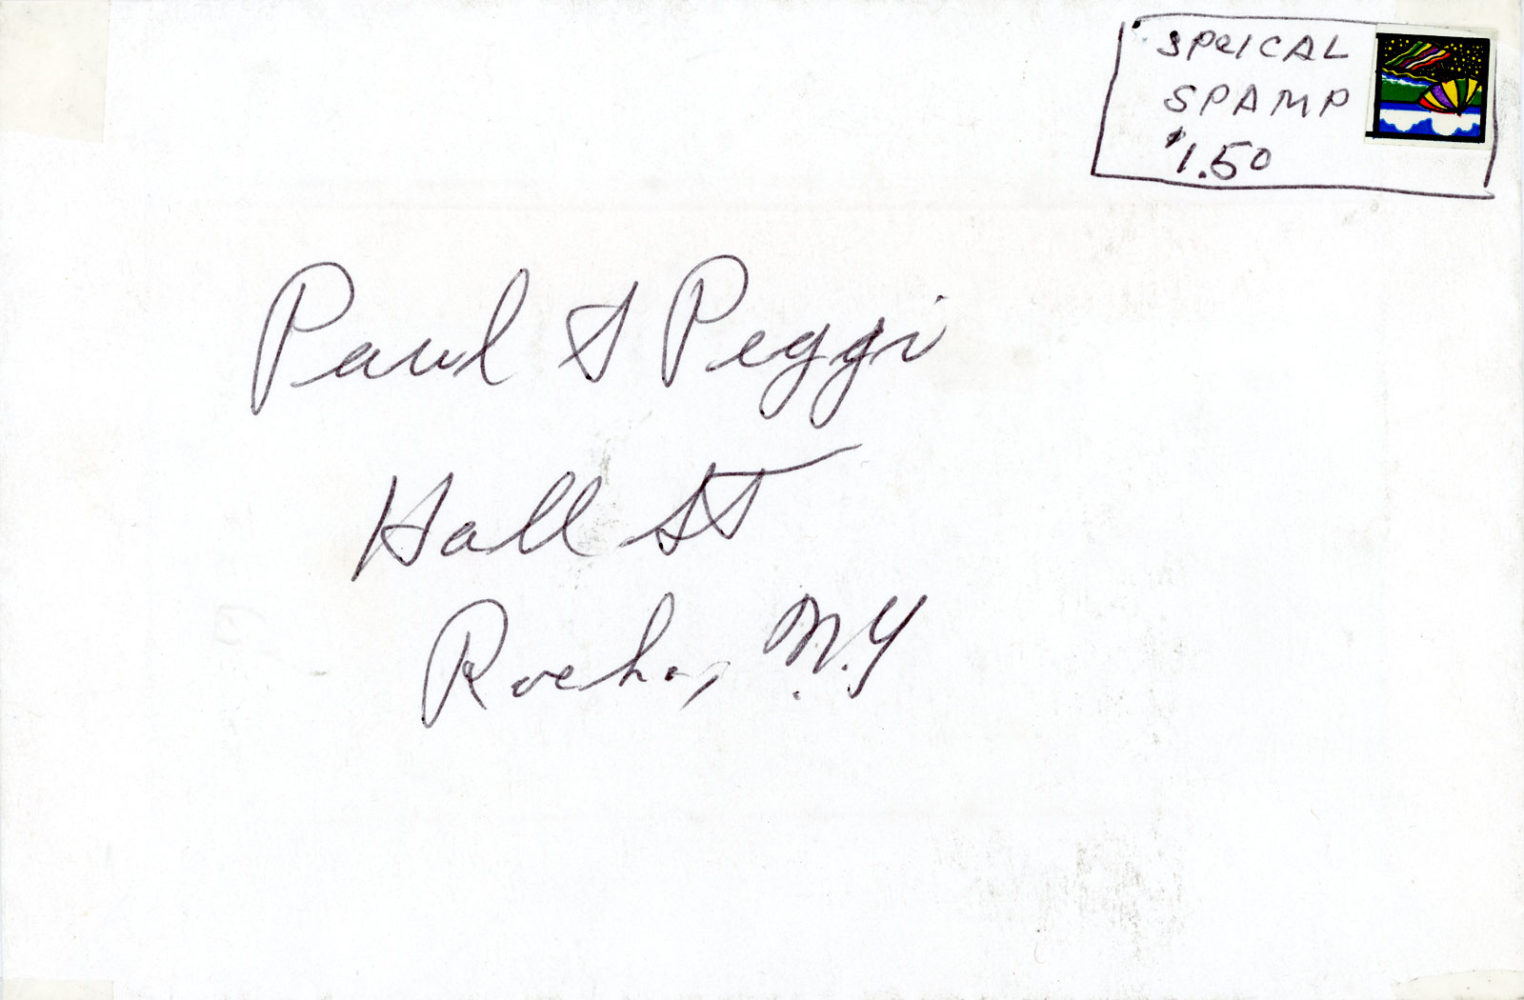 SPEICAL
SPAMP
$1.50
Paul & Peggi
Hall St
Roch., N.Y